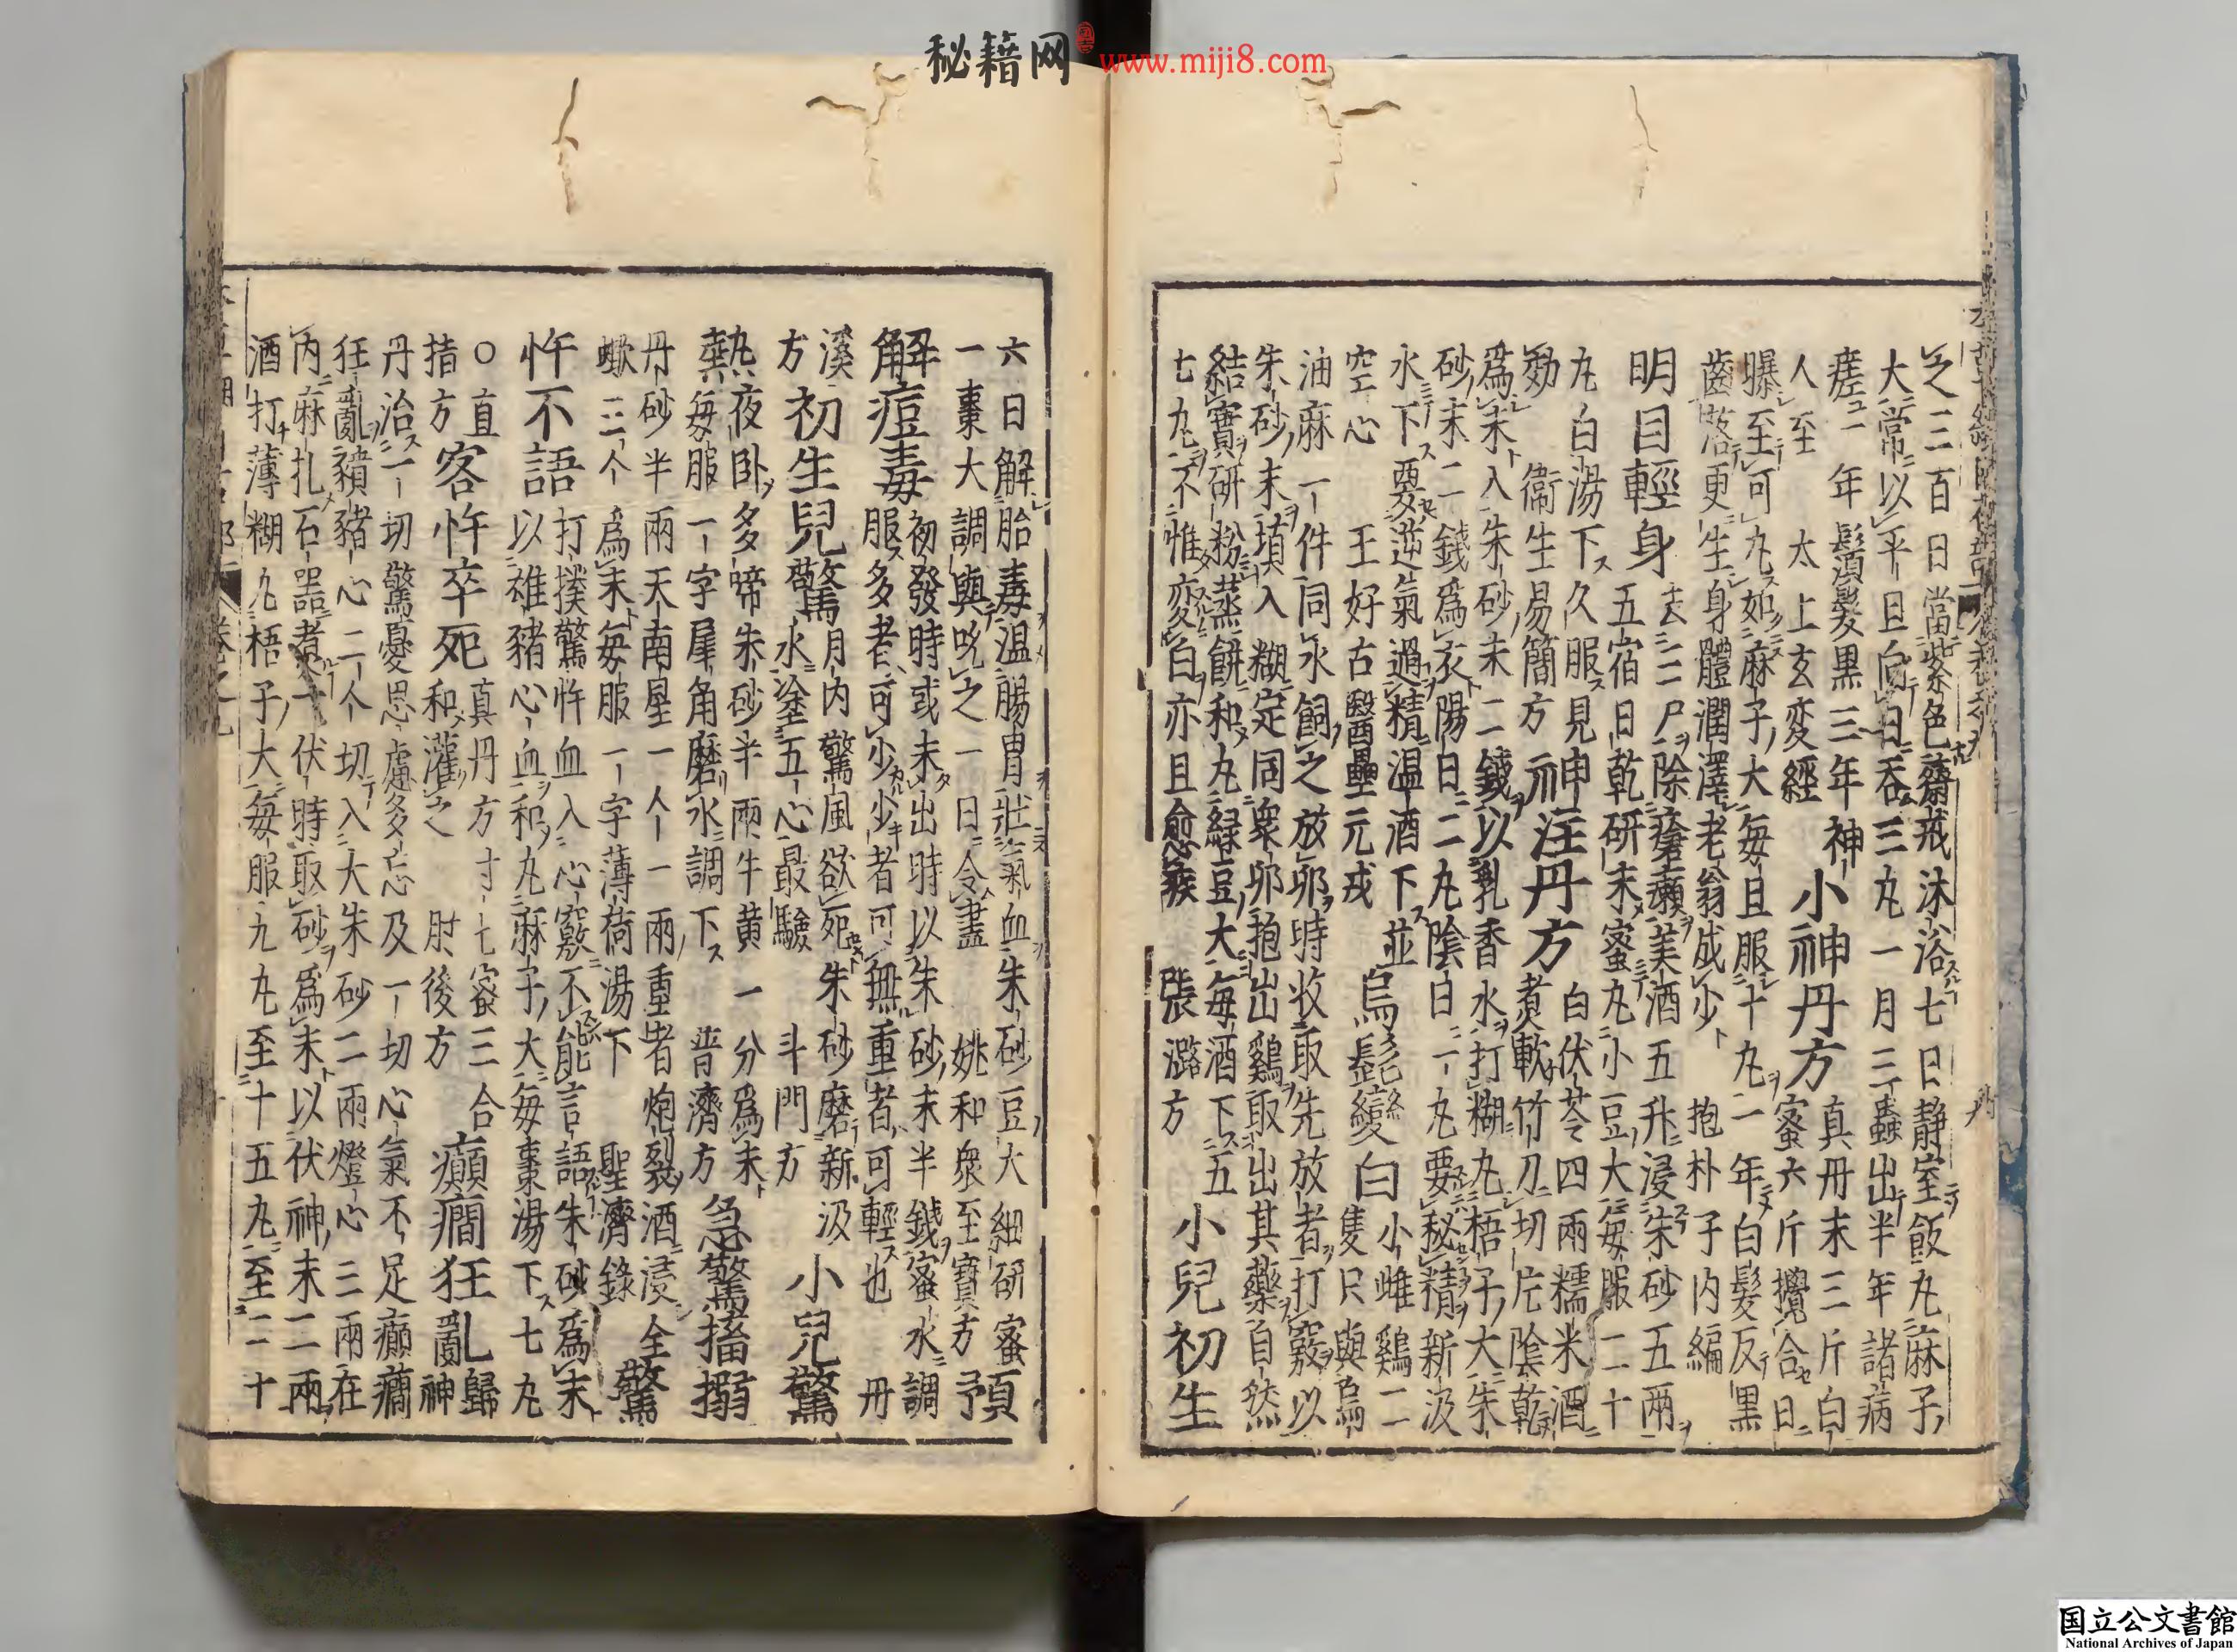 秘籍网 www.miji8.com
之三百日當紫色齋戒沐浴七日靜室飯丸麻子
大常以平旦向日吞三丸一月三蟲出半年諸病
瘥一年鬚髮黒三年神人至 太上玄変經
小神丹方 真丹末三斤白蜜六斤攪合日
曝至可丸如麻子大每旦服十丸一年白髮反黒
齒落更生身體潤澤老翁成少 抱朴子内編
明目輕身 去三尸除瘡癩美酒五升浸朱砂五兩
五宿日乾研末蜜丸小豆大每服二十
丸白湯下久服見効 衞生易簡方
神注丹方 白伏苓四兩糯米酒
煮軟竹刀切片陰乾
爲末入朱砂末二錢以乳香水打糊丸梧子大朱
砂末二錢爲衣陽日二丸陰日一丸要秘精新汲
水下要逆氣過精温酒下並空心 王好古醫壘元戎
烏髭變白 小雌鷄二隻只與烏
油麻一件同水飼之放卵時收取先放者打竅以
朱砂末填入糊定同衆卵抱出鷄取出其藥自然
結實研粉蒸餅和丸緑豆大每酒下五
七丸不惟変白亦且愈疾 張潞方
小兒初生
六日解胎毒温腸胃壯氣血朱砂豆大細研蜜
一棗大調與吮之一日令盡 姚和衆至寳方
預解痘毒 初發時或未出時以朱砂末半錢蜜水調
服多者可少少者可無重者可輕也 丹溪方
初生兒驚 月内驚風欲死朱砂磨新汲
水塗五心最驗 斗門方
小兒驚熱 夜卧多啼朱砂半兩牛黄一分爲末
每服一字犀角磨水調下 普濟方
急驚搐搦
丹砂半兩天南星一个一兩重者炮裂酒浸全
蠍三个爲末每服一字薄荷湯下 聖濟錄
驚忤不語 打撲驚忤血入心竅不能言語朱砂爲末
以雄豬心血和丸麻子大每棗湯下七丸
○直指方
客忤卒死 真丹方寸七蜜三合
和灌之 肘後方
癲癇狂亂 歸神
丹治一切驚憂思慮多忘及一切心氣不足癲癇
狂亂豶豬心二个切入大朱砂二兩燈心三兩在
内麻扎石器煮一伏時取砂爲末以伏神末二兩
酒打薄糊丸梧子大每服九丸至十五丸至二十
国立公文書館
National Archives of Japan